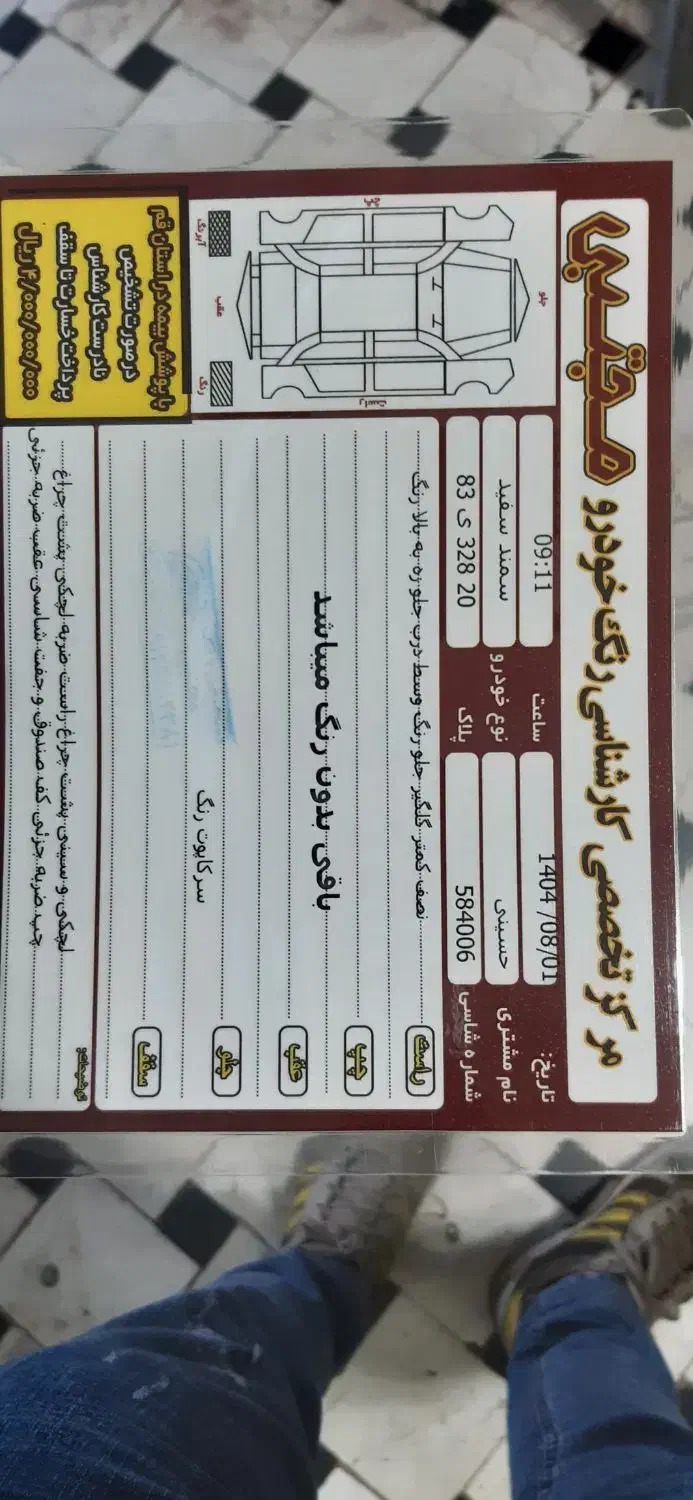 مجتبی
مرکز تخصصی کارشناسی رنگ خودرو
تاریخ: 1404 /08/01 ساعت 09:11
نام مشتری حسینی نوع خودرو سمند سفید
شماره شاسی 584006 پلاک 83 ی 328 20
راست نصف کمتر گلگیر جلو رنگ وسط درب جلو ره به بالا رنگ
چپ
باقی بدون رنگ میباشد
عقب
جلو سر کاپوت رنگ
سقف
توضیحات:
لچکی و سینی پشت چراغ راست ضربه لچکی پشت چراغ
چپ ضربه جزئی کف صندوق و جفت شاسی عقب ضربه جزئی
جلو
چپ
راست
عقب
آبرنگ
رنگ
با پوشش بیمه در استان قم
در صورت تشخیص
نادرست کارشناس
پرداخت خسارت تا سقف
۴/۰۰۰/۰۰۰/۰۰۰ ریال